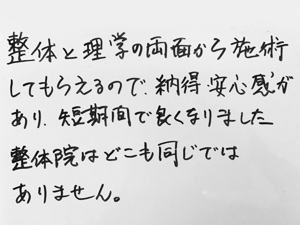 整体と理学の両面から施術
してもらえるので、納得 安心感が
あり、短期間で良くなりました
整体院はどこも同じでは
ありません。